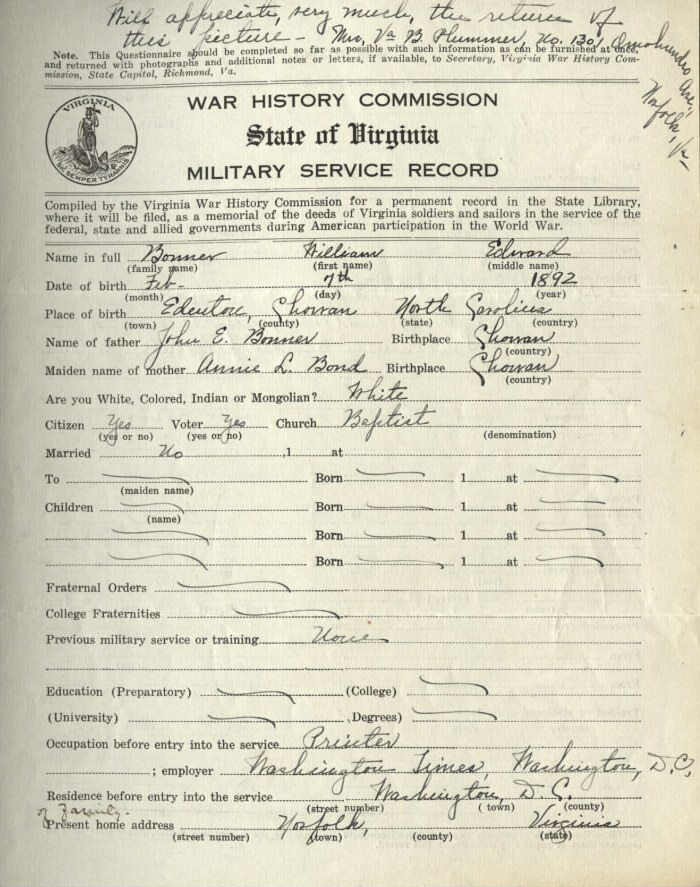 Will appreciate, very much, the return of
this picture - Mrs. Va B. Plummer, No. 1301 Omohundro Ave,
Norfolk, Va
Note. This Questionnaire should be completed so far as possible with such information as can be furnished at once,
and returned with photographs and additional notes or letters, if available, to Secretary, Virginia War History Com-
mission, State Capitol, Richmond, Va.
VIRGINIA
SIC SEMPER TYRANNIS
WAR HISTORY COMMISSION
State of Virginia
MILITARY SERVICE RECORD
Compiled by the Virginia War History Commission for a permanent record in the State Library,
where it will be filed, as a memorial of the deeds of Virginia soldiers and sailors in the service of the
federal, state and allied governments during American participation in the World War.
Name in full Bonner William Edward
(family name) (first name) (middle name)
Date of birth Feb- 7th 1892
(month) (day) (year)
Place of birth Edenton, Chowan North Carolina
(town) (county) (state) (country)
Name of father John E. Bonner Birthplace Chowan
(country)
Maiden name of mother Annie L. Bond Birthplace Chowan
(country)
Are you White, Colored, Indian or Mongolian? White
Citizen Yes Voter Yes Church Baptist
(yes or no) (yes or no) (denomination)
Married No ,1 at
To Born 1 at
(maiden name)
Children Born 1 at
(name)
Born 1 at
Born 1 at
Fraternal Orders
College Fraternities
Previous military service or training None
Education (Preparatory) (College)
(University) (Degrees)
Occupation before entry into the service Printer
; employer Washington Times, Washington, D.C,
Residence before entry into the service Washington, D.C.
(street number) (town) (county)
of Family.
Present home address Norfolk, Virginia
(street number) (town) (county) (state)